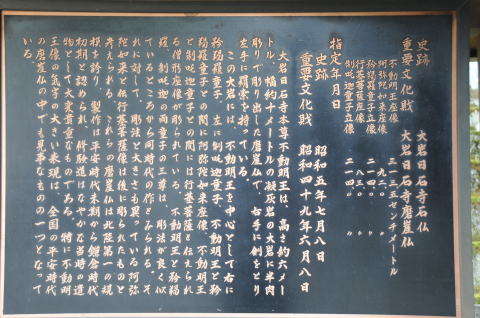 史跡 大岩日石寺石仏
重要文化財 大岩日石寺磨崖仏
不動明王座像 三一三・五センチメートル
阿弥陀如来座像 九二・〇 〃
矜羯羅童子立像 二一四・〇 〃
行基菩薩座像 八三・〇 〃
制吒迦童子立像 二一四・〇 〃
指定年月日
史跡 昭和五年七月八日
重要文化財 昭和四十九年六月八日
大岩日石寺本尊不動明王は、高さ約六メー
トル、幅約十メートルの凝灰岩の大岩に半肉
彫りで彫り出した磨崖仏で、右手に剣をとり
左手に羂索を持っている。
この大岩には、不動明王を中心として右に
矜羯羅童子、左に制吒迦童子、不動明王と矜
羯羅童子との間に阿弥陀如来座像、不動明王
と制吒迦童子との間には行基菩薩と伝えられ
る僧形座像が彫られている。不動明王と矜羯
羅、制吒迦の両童子の三尊は、彫法が良く似
ているところから同時代の作とみられる。そ
れに対して、彫法と大きさも異っている阿弥
陀如来と伝行基菩薩像は後に彫られたものと
考えられる。これらの磨崖仏は北陸第一の規
模を誇り、製作は平安時代末期から鎌倉時代
初期と認められ、修験道はなやかな当時の遺
物として大変貴重なものである。特に不動明
王像の気宇の大きい表現は、全国の平安時代
の磨崖仏の中でも見事なものの一つとなって
いる。